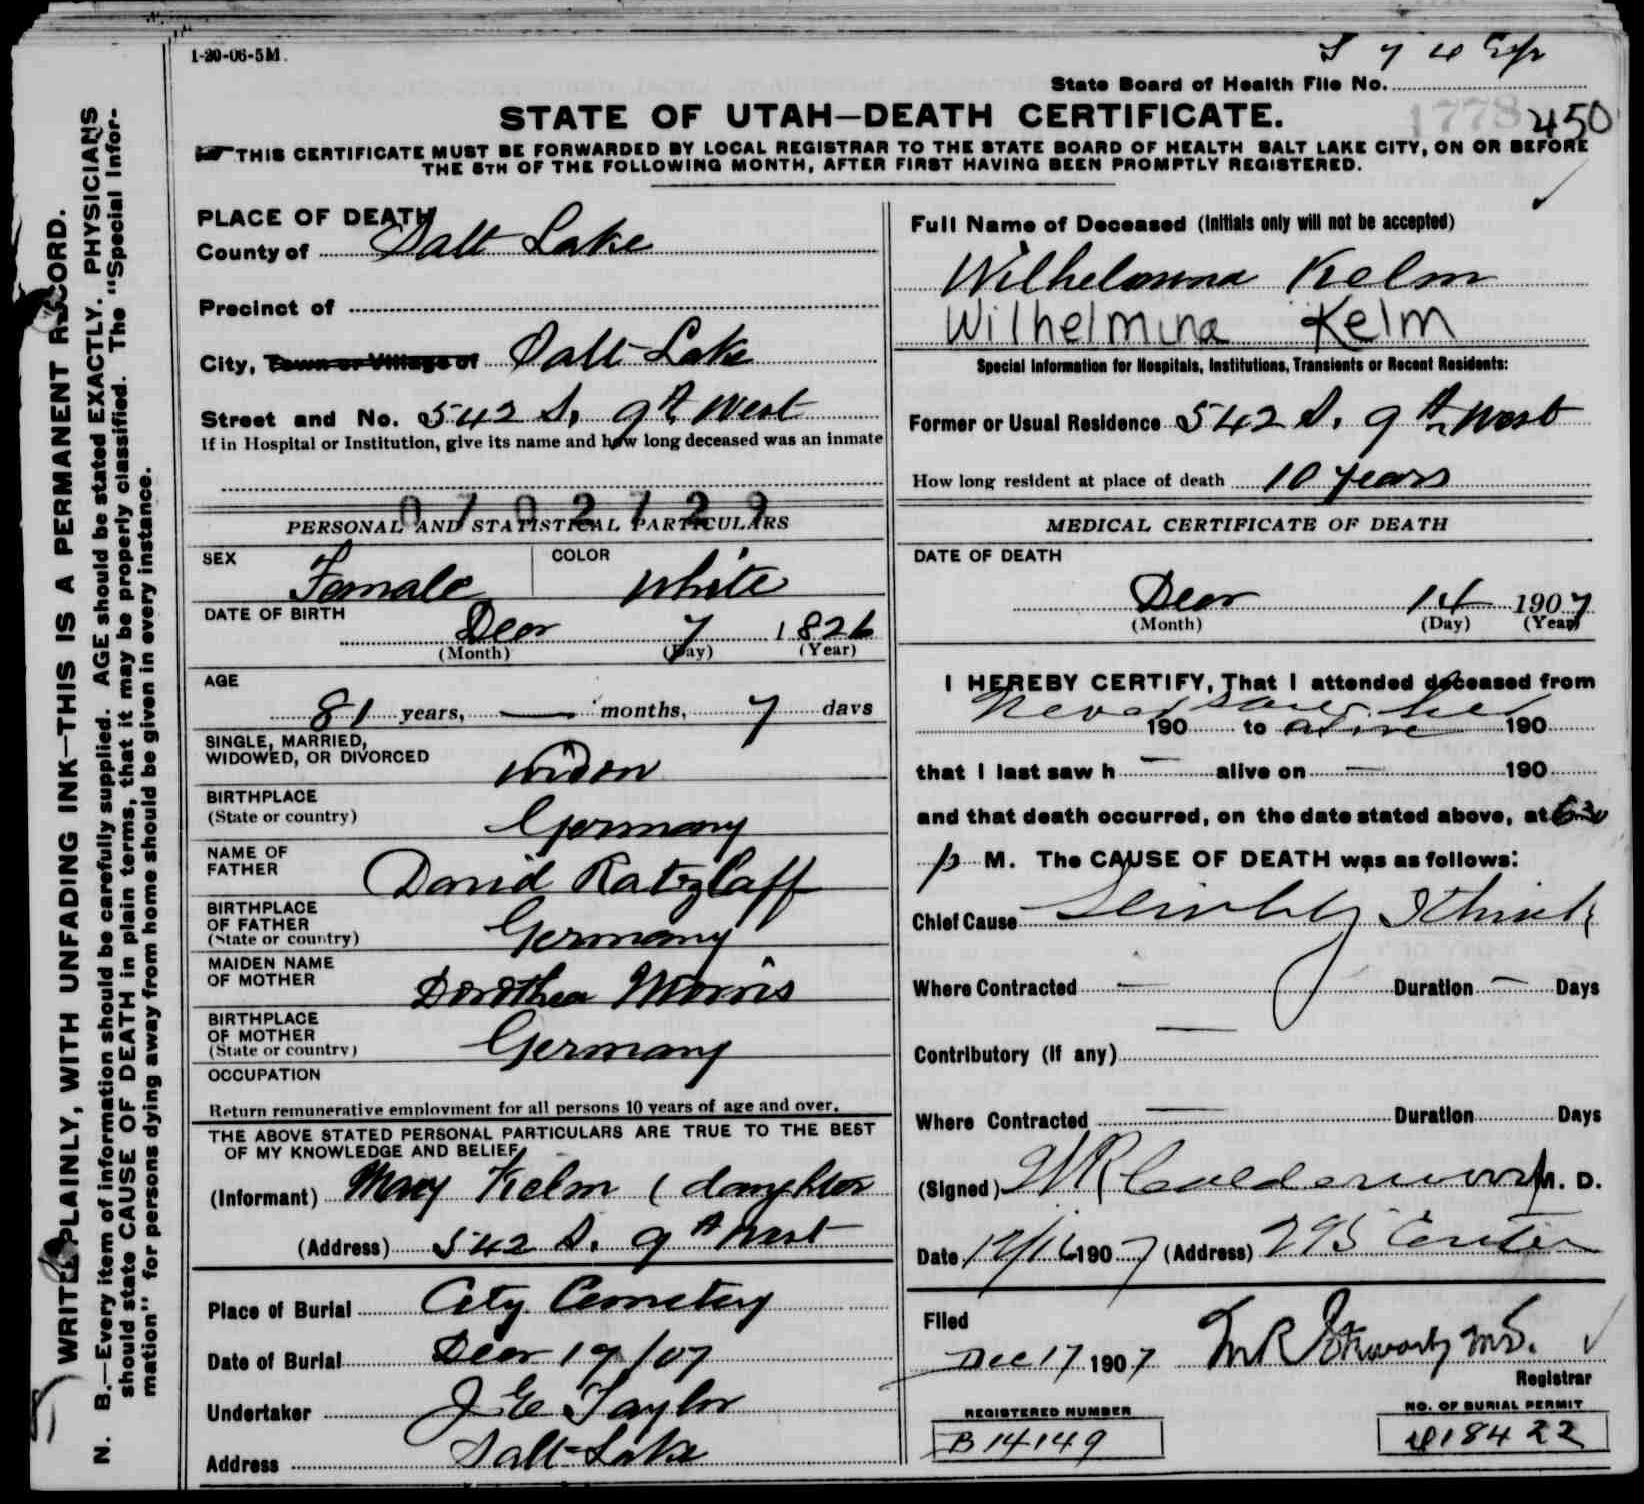 1-20-06-5M.
State Board of Health File No.
1778 450
STATE OF UTAH—DEATH CERTIFICATE.
THIS CERTIFICATE MUST BE FORWARDED BY LOCAL REGISTRAR TO THE STATE BOARD OF HEALTH SALT LAKE CITY, ON OR BEFORE
THE 5TH OF THE FOLLOWING MONTH, AFTER FIRST HAVING BEEN PROMPTLY REGISTERED.
WRITE PLAINLY, WITH UNFADING INK—THIS IS A PERMANENT RECORD.
N. B.—Every item of information should be carefully supplied. AGE should be stated EXACTLY. PHYSICIANS
should state CAUSE OF DEATH in plain terms, that it may be properly classified. The "Special Infor-
mation" for persons dying away from home should be given in every instance.
PLACE OF DEATH
County of Salt Lake
Precinct of
City, Town or Village of Salt Lake
Street and No. 542 S. 9th West
If in Hospital or Institution, give its name and how long deceased was an inmate
0702729
PERSONAL AND STATISTICAL PARTICULARS
SEX Female COLOR White
DATE OF BIRTH
Decr 7 1826
(Month) (Day) (Year)
AGE
81 years, — months, 7 days
SINGLE, MARRIED,
WIDOWED, OR DIVORCED Widow
BIRTHPLACE
(State or country) Germany
NAME OF
FATHER David Ratzlaff
BIRTHPLACE
OF FATHER
(State or country) Germany
MAIDEN NAME
OF MOTHER Dorothea Morris
BIRTHPLACE
OF MOTHER
(State or country) Germany
OCCUPATION
Return remunerative employment for all persons 10 years of age and over.
THE ABOVE STATED PERSONAL PARTICULARS ARE TRUE TO THE BEST
OF MY KNOWLEDGE AND BELIEF
(Informant) Mary Kelm (daughter
(Address) 542 S. 9th West
Place of Burial City Cemetery
Date of Burial Decr 19/07
Undertaker J E Taylor
Address Salt Lake
Full Name of Deceased (Initials only will not be accepted)
Wilhelmina Kelm
Wilhelmina Kelm
Special Information for Hospitals, Institutions, Transients or Recent Residents:
Former or Usual Residence 542 S. 9th West
How long resident at place of death 10 years
MEDICAL CERTIFICATE OF DEATH
DATE OF DEATH
Decr 14 1907
(Month) (Day) (Year)
I HEREBY CERTIFY, That I attended deceased from
Never saw her
190 to alive 190
that I last saw h — alive on — 190
and that death occurred, on the date stated above, at 6 30
p M. The CAUSE OF DEATH was as follows:
Chief Cause Senility I think
Where Contracted — Duration — Days
—
Contributory (If any)
Where Contracted — Duration Days
(Signed) W R Calderwood M. D.
Date 12/16 1907 (Address) 295 Center
Filed
Dec 17 1907 M R Stewart M.D.
Registrar
REGISTERED NUMBER
B 14149
NO. OF BURIAL PERMIT
18422